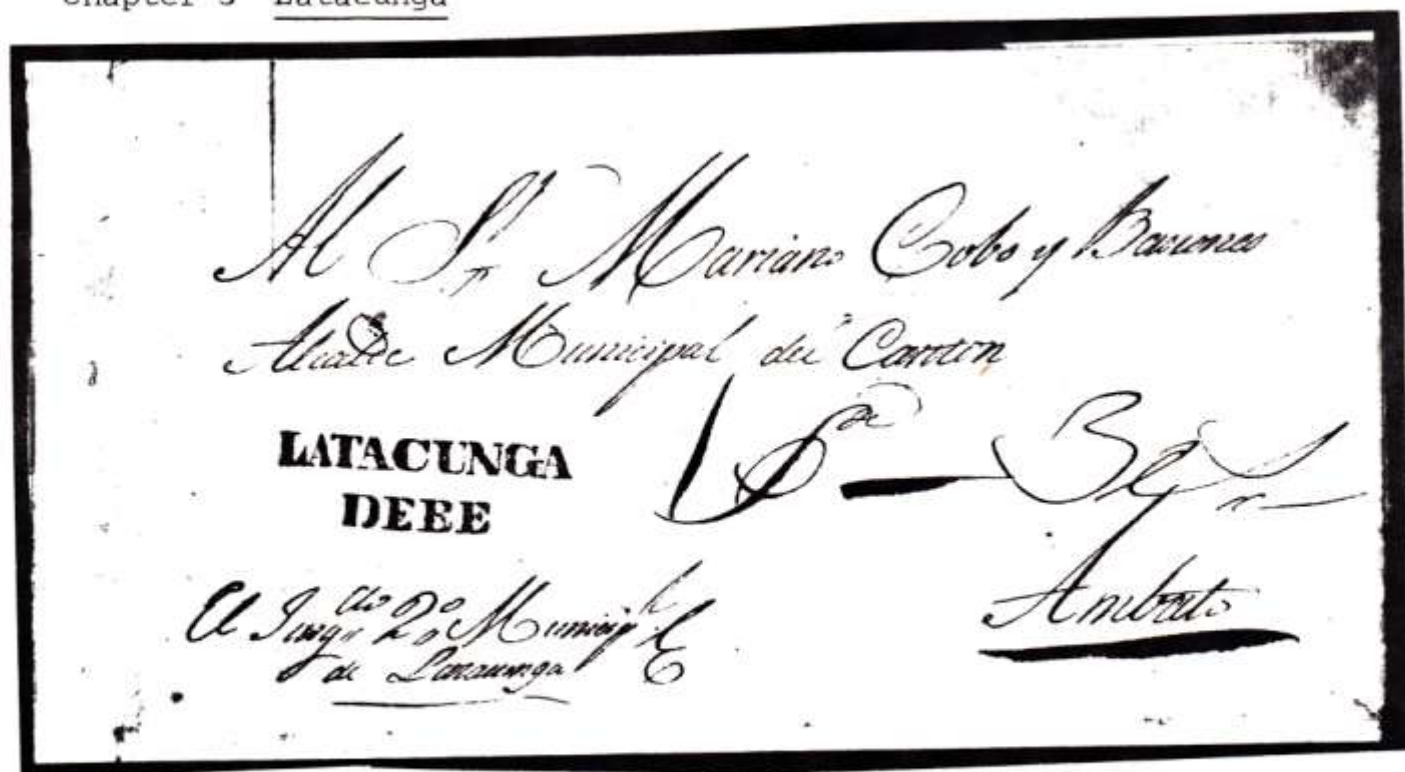 Chapter 3 Latacunga
Al Sr. Mariano Cobo y
Alcalde Municipal del Canton
LATACUNGA
DEBE
Ambato
El Juzgdo 2o Municipl
de Latacunga